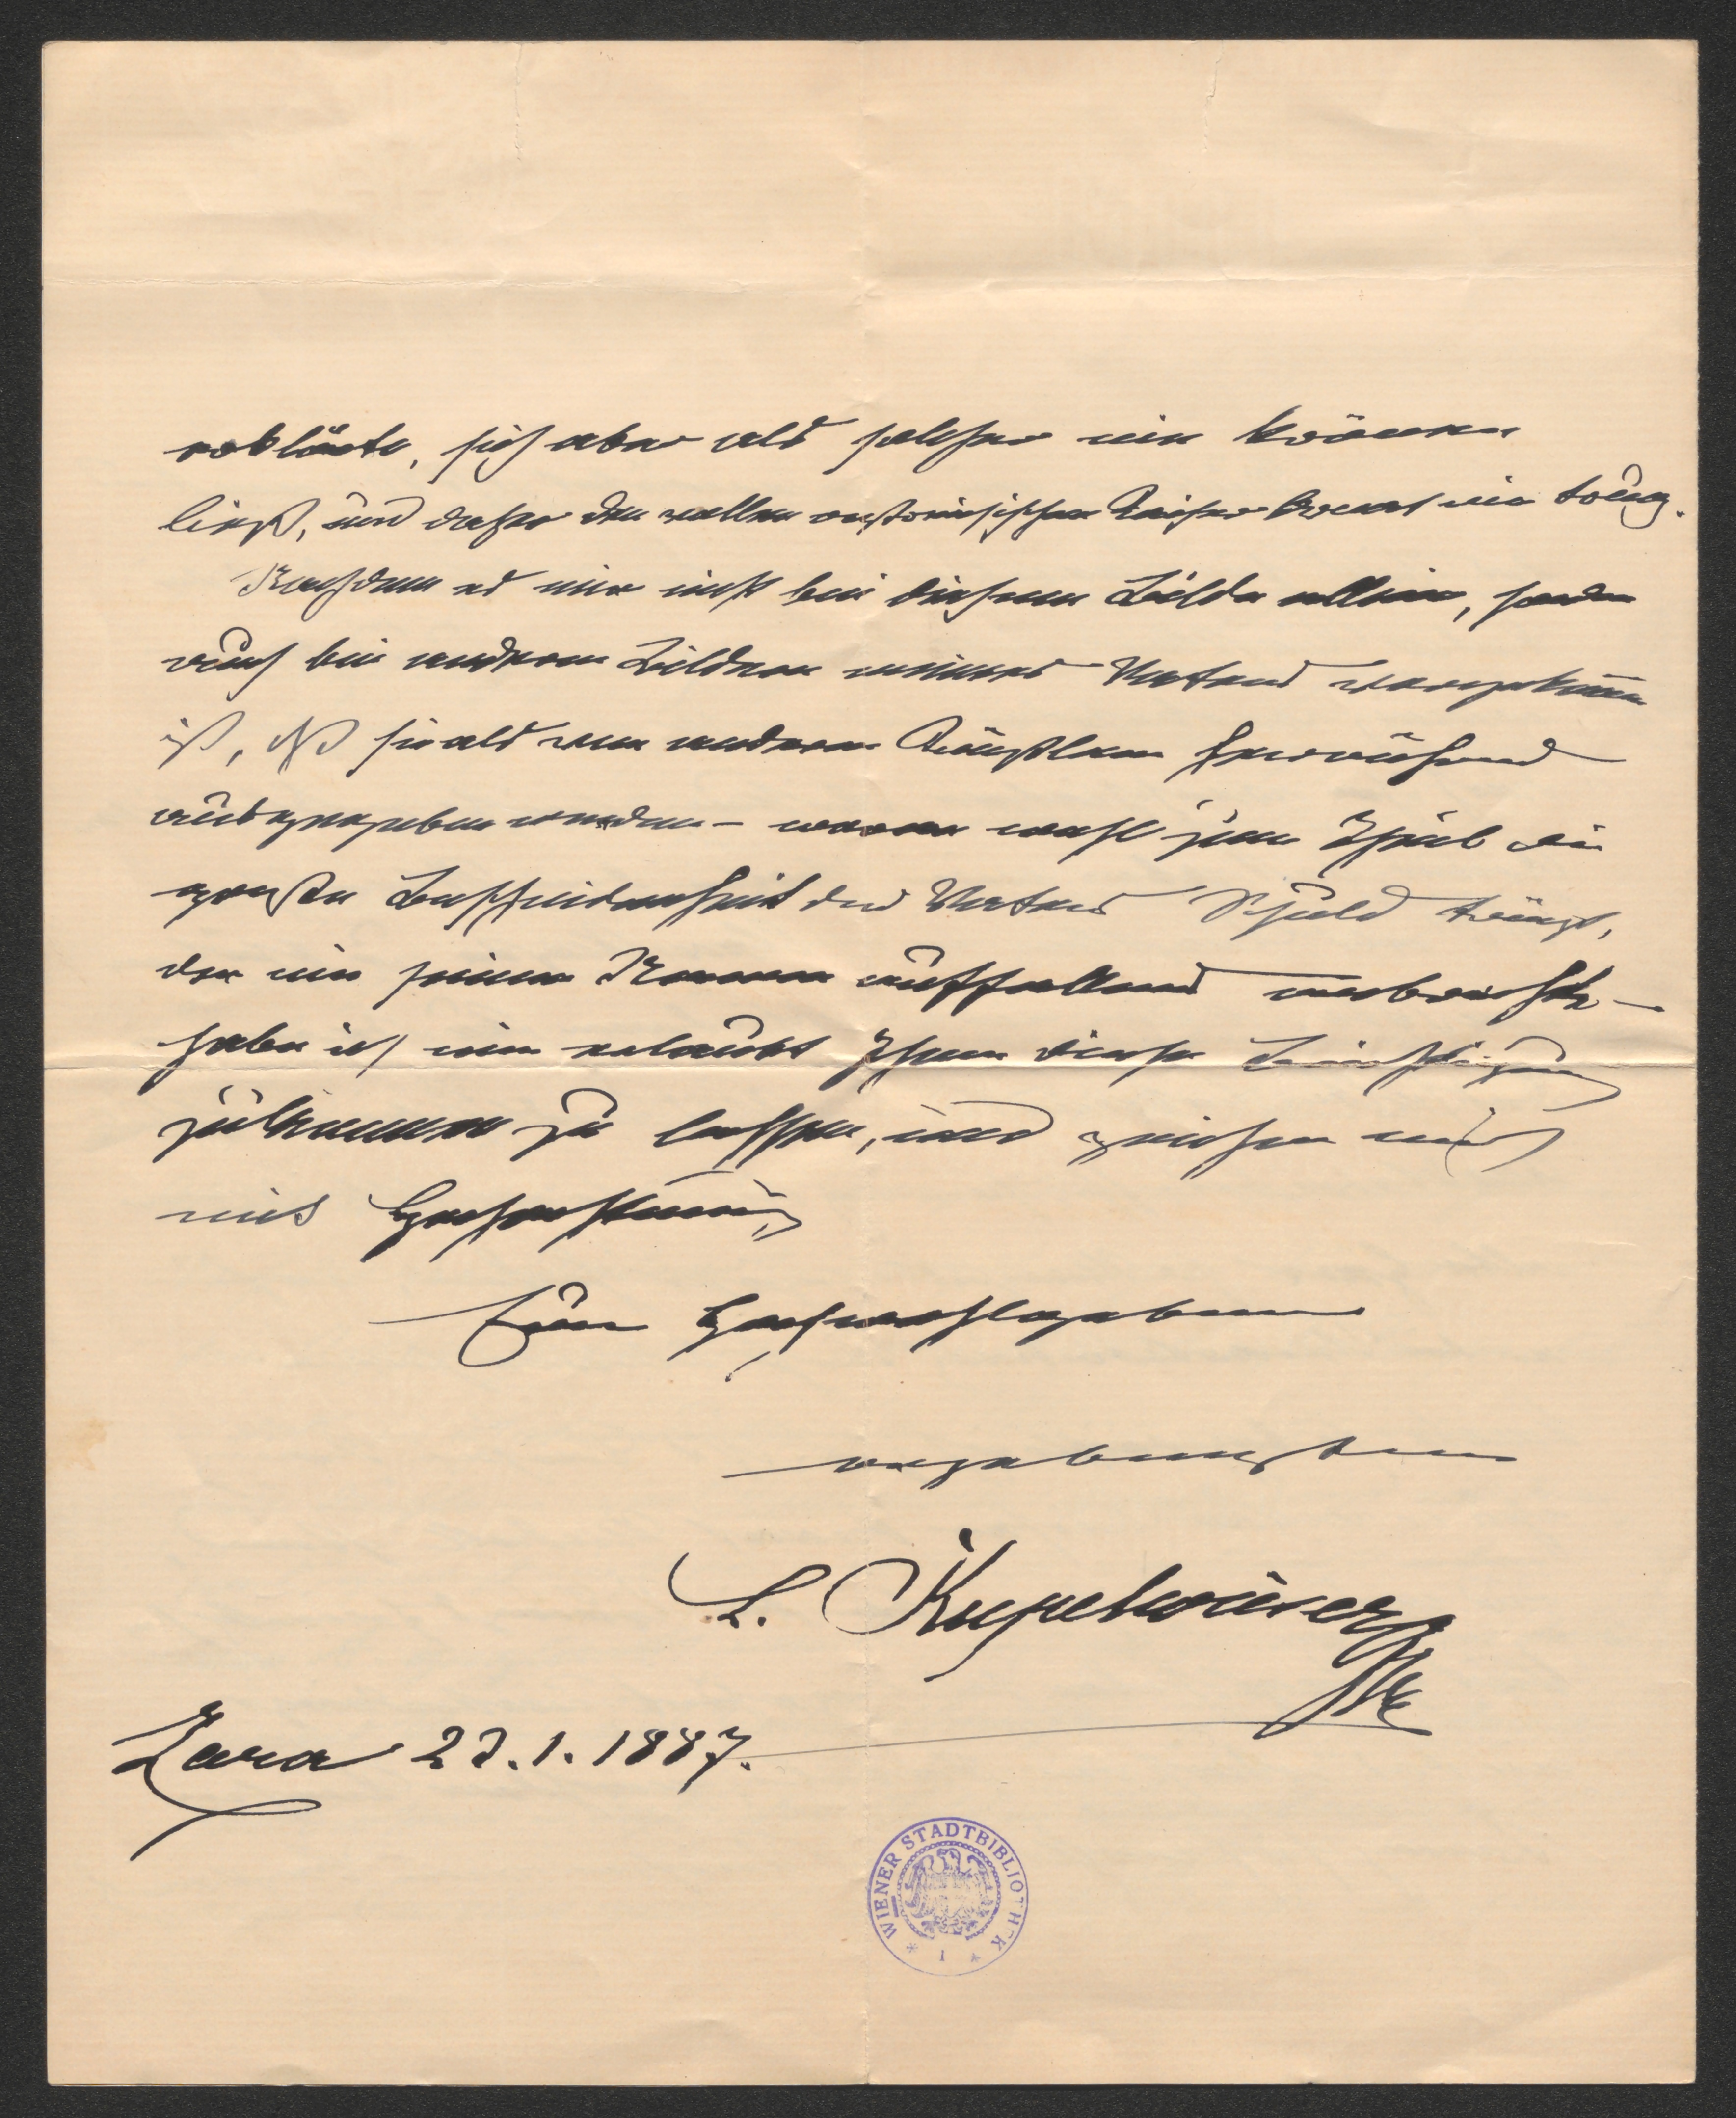 erklärte, sich aber als solcher nie krönen
ließ, und daher den vollen oesterreichischen Kaiser Ornat nie trug.
Nachdem es mir nicht bei diesem Bilde allein, sondern
auch bei anderen Bildern meines Vaters vorgekommen
ist, daß sie als von anderen Künstlern herrührend
ausgegeben werden – woran wohl zum Theil die
große Bescheidenheit des Vaters Schuld trägt,
der nie seinen Namen auffallend anbrachte –
habe ich mir erlaubt Ihnen diese Berichtigung
zukommen zu lassen, und zeichne mich
mit Hochachtung
Euer Hochwohlgeboren
ergebenster
L. Kupelwieser
Zara 23.1.1887.
WIENER STADTBIBLIOTHEK